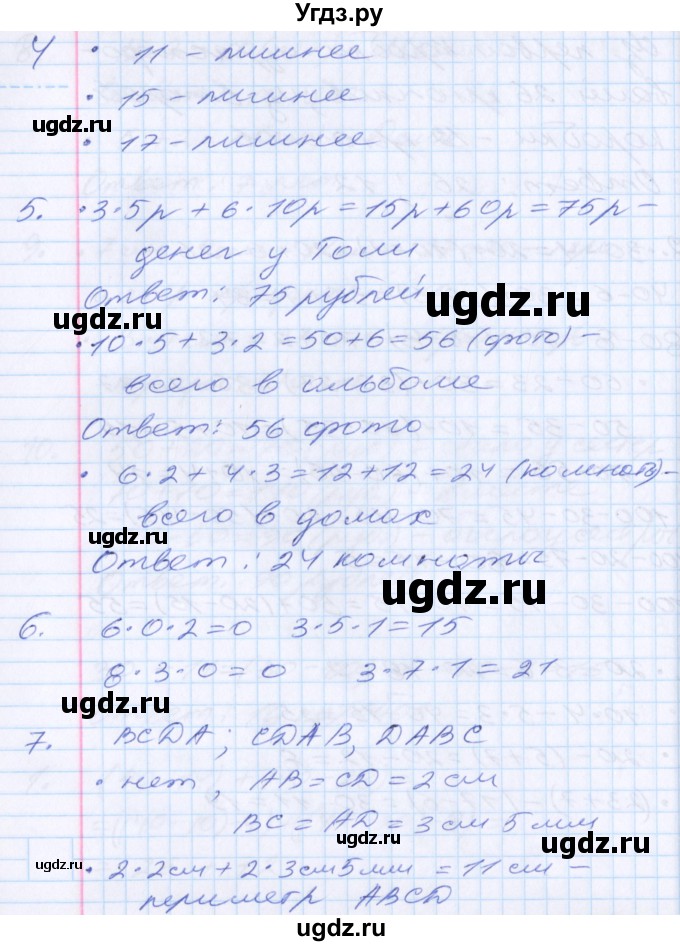 Угдз.ру
4 • 11 - лишнее
• 15 - лишнее
ugdz.ru
• 17 - лишнее
5. • 3·5р + 6·10р = 15р + 60р = 75р -
денег у Толи
Ответ: 75 рублей
ugdz.ru
ugdz.ru
• 10·5 + 3·2 = 50 + 6 = 56 (фото) -
всего в альбоме
Ответ: 56 фото
• 6·2 + 4·3 = 12 + 12 = 24 (комнаты) -
всего в домах
ugdz.ru
Ответ: 24 комнаты
ugdz.ru
6. 6·0·2 = 0 3·5·1 = 15
8·3·0 = 0 3·7·1 = 21
ugdz.ru
7. BCDA; CDAB, DABC
• нет, AB = CD = 2 см
BC = AD = 3 см 5 мм
ugdz.ru
ugdz.ru
ugdz.ru
• 2·2см + 2·3см5мм = 11 см -
периметр ABCD
Угдз.ру